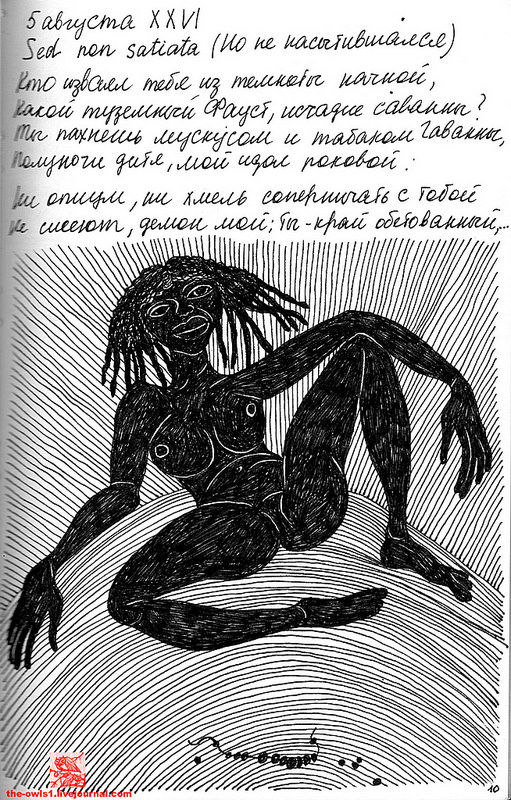 5 августа XXVI
Sed non satiata (Но не насытившаяся)
Кто изваял тебя из темноты ночной,
Какой туземный Фауст, исчадие саванны?
Ты пахнешь мускусом и табаком Гаванны,
Полуночи дитя, мой идол роковой.
Ни опиум, ни хмель соперничать с тобой
Не смеют, демон мой; ты - край обетованный,..
the-owls1.livejournal.com
10